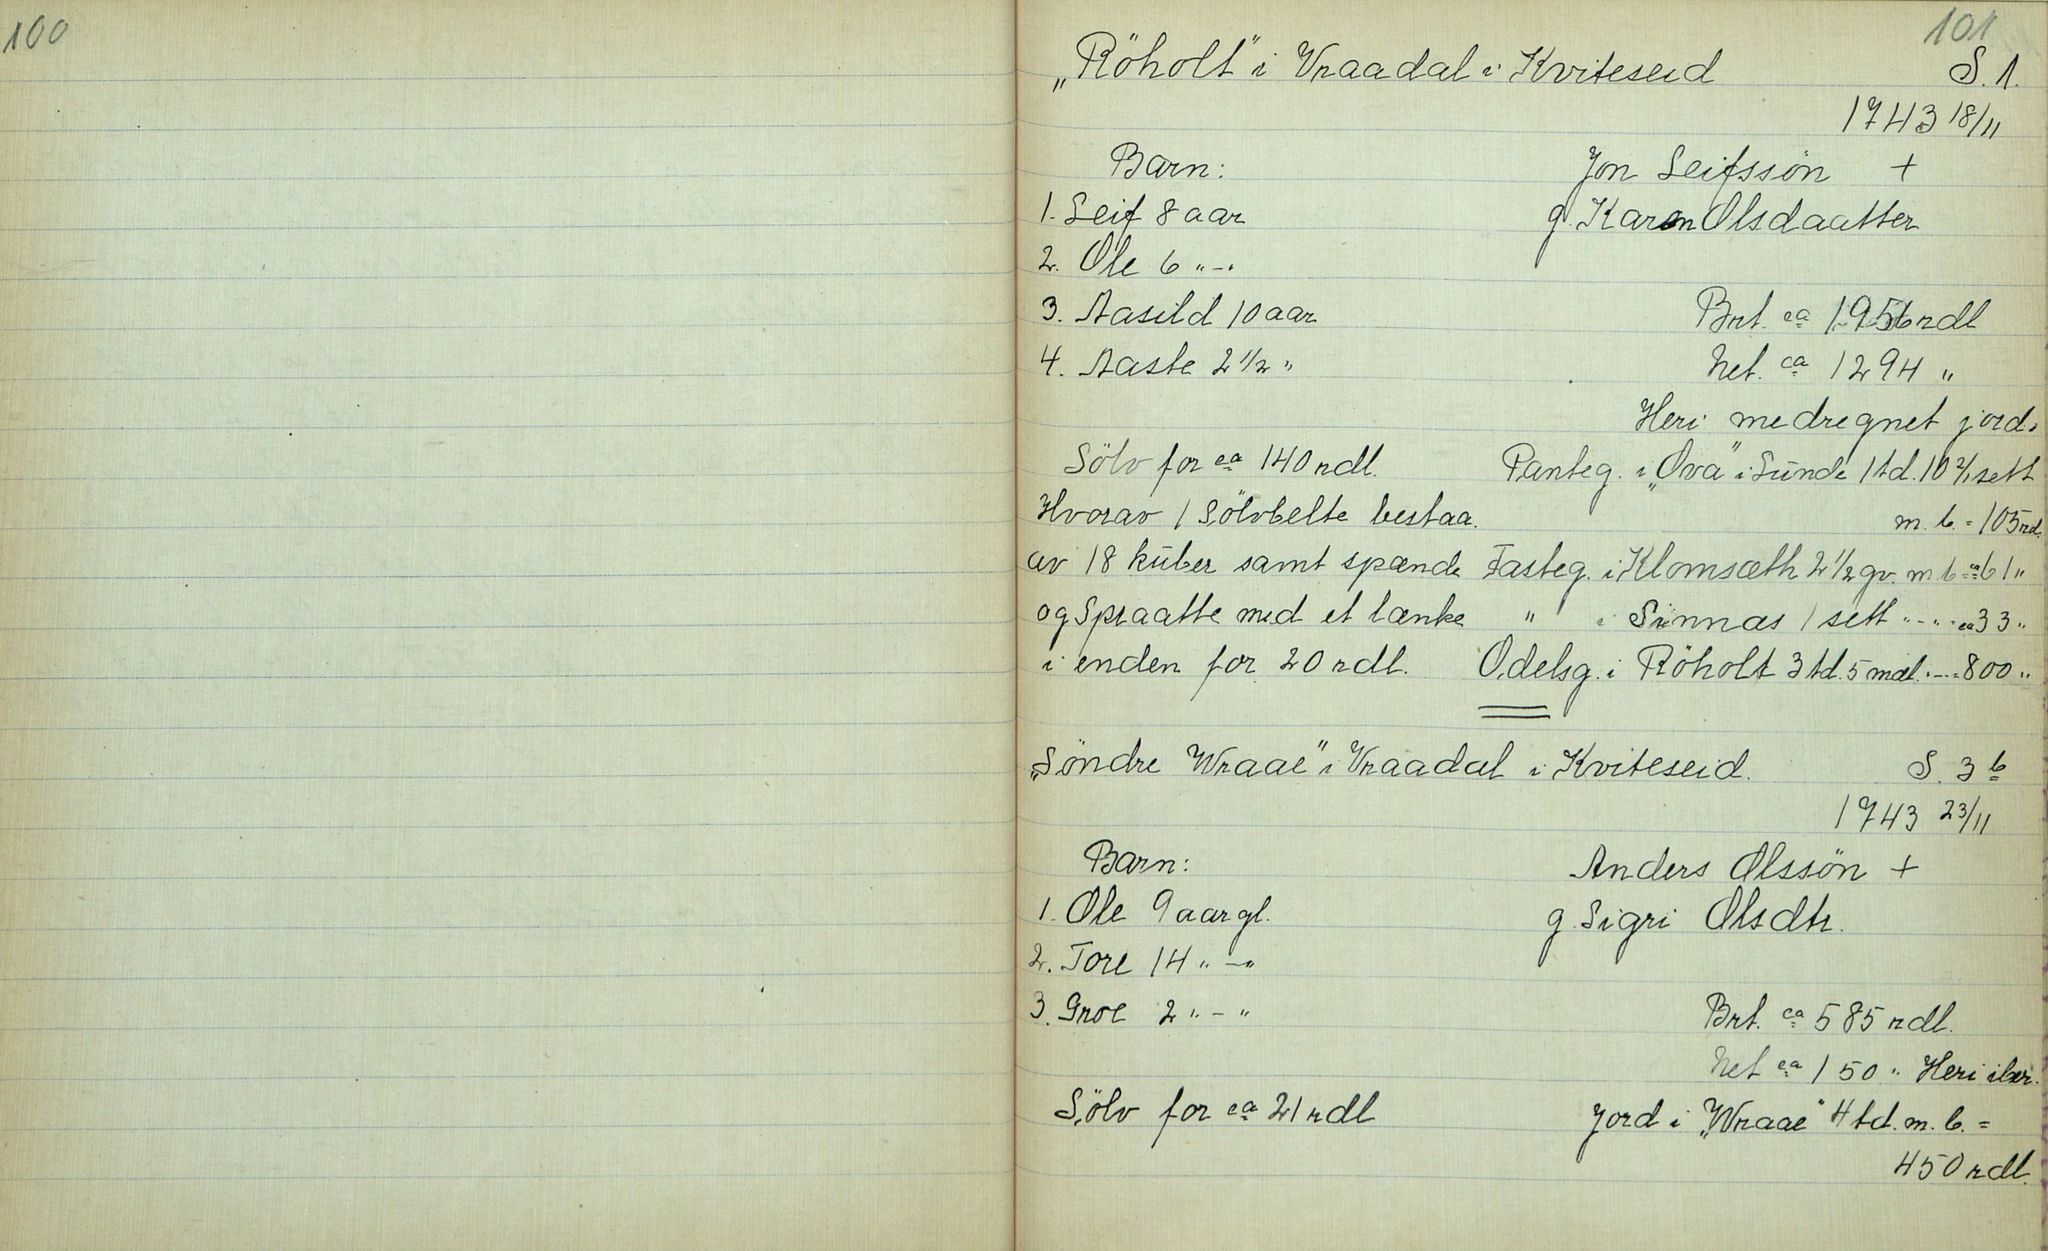 100
101
„Röholt" i Vraadal i Kviteseid S. 1.
1743 18/11
Barn: Jon Leifssön +
1. Leif 8 aar g. Karen Olsdaatter
2. Ole 6 " - "
3. Aasild 10 aar Brt. ca 1956 rdl
4. Aaste 2 1/2 " Net. ca 1294 "
Heri medregnet jord.
Sölv for ca 140 rdl. Panteg. i „Ova" i Sunde 1 td. 10 2/1 sett
Hvorav 1 Sölvbelte bestaa. m. b. = 105 rd.
av 18 kuber samt spænde Fasteg. i Klomsæth 2 1/2 gv. m. b = ca 61 "
og Spraatte med et lænke " i Sinnæs 1 sett " - " - ca 33 "
i enden for 20 rdl. Odelsg. i Röholt 3 td. 5 mæl. - - 800 "
„Söndre Wraae" i Vraadal i Kviteseid. S. 3 b
1743 23/11
Barn: Anders Olssön +
1. Ole 9 aar gl. g. Sigri Olsdtr.
2. Tore 14 " - "
3. Groe 2 " - " Brt. ca 585 rdl.
Net ca 150 " Heri iber.
Sölv for ca 21 rdl Jord i „Wraae" 4 td. m. b. =
450 rdl.